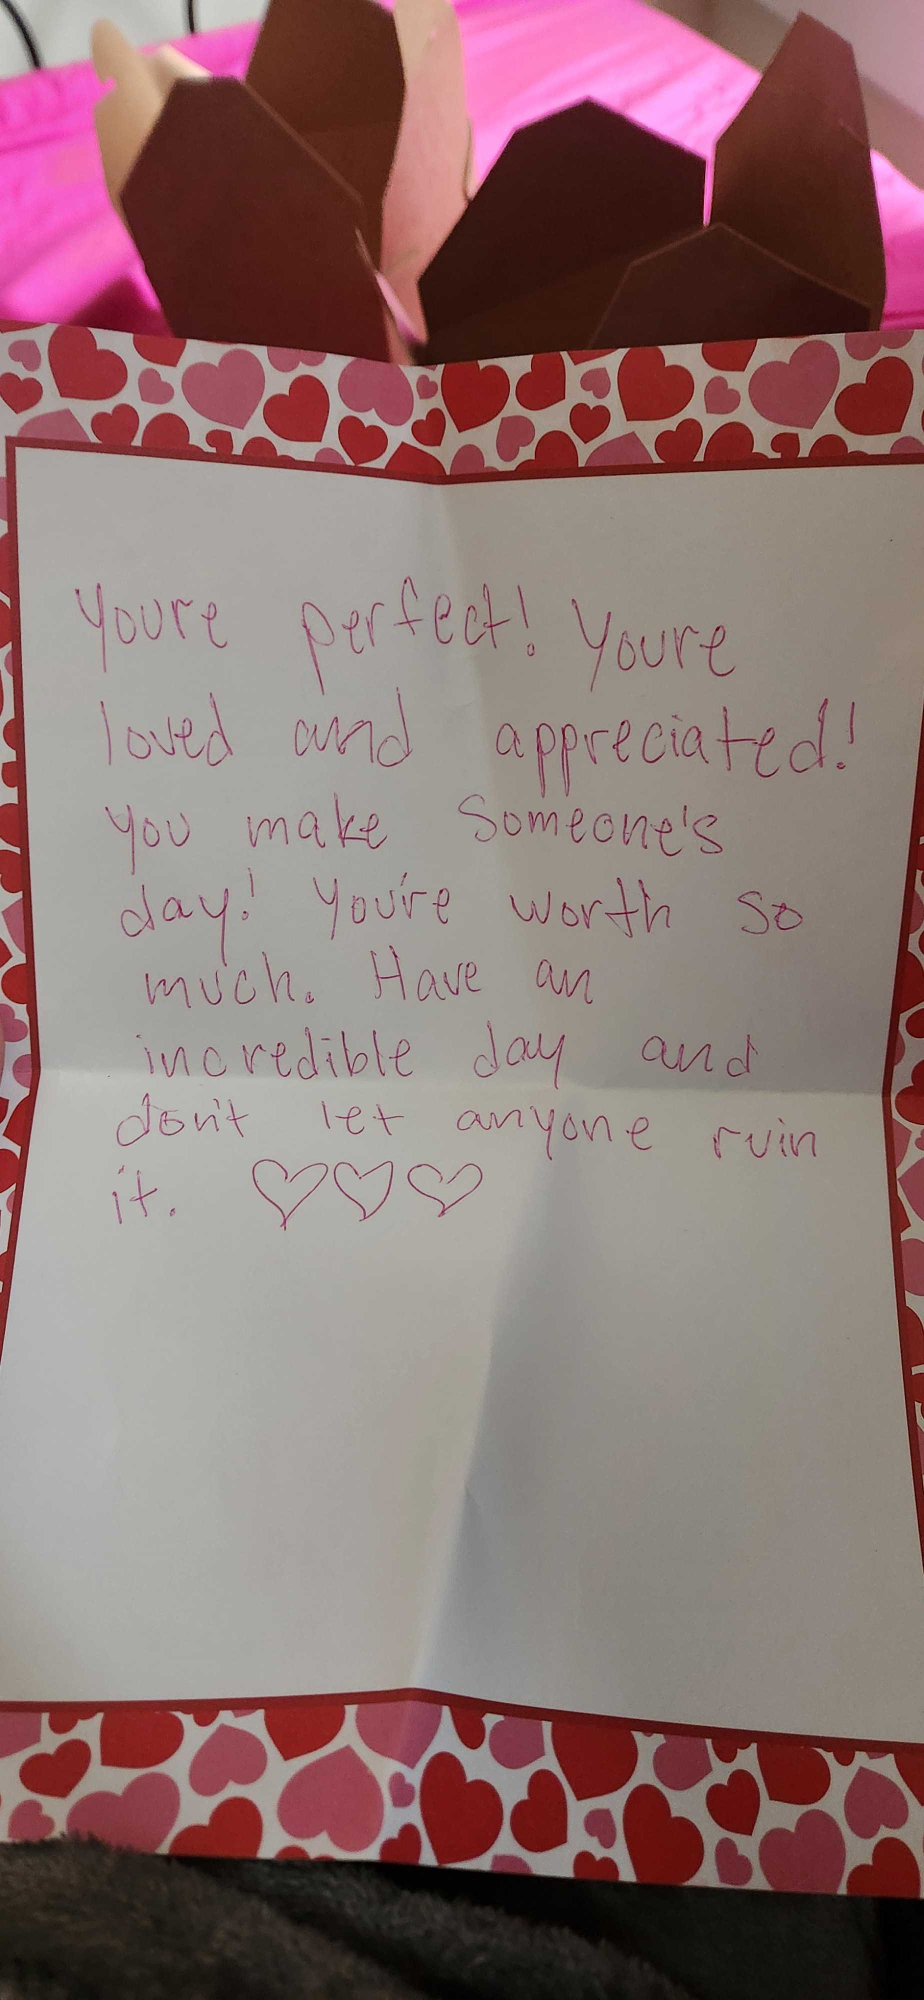 Youre perfect! Youre
loved and appreciated!
you make Someone's
day! You're worth so
much. Have an
incredible day and
don't let anyone ruin
it. ♡♡♡